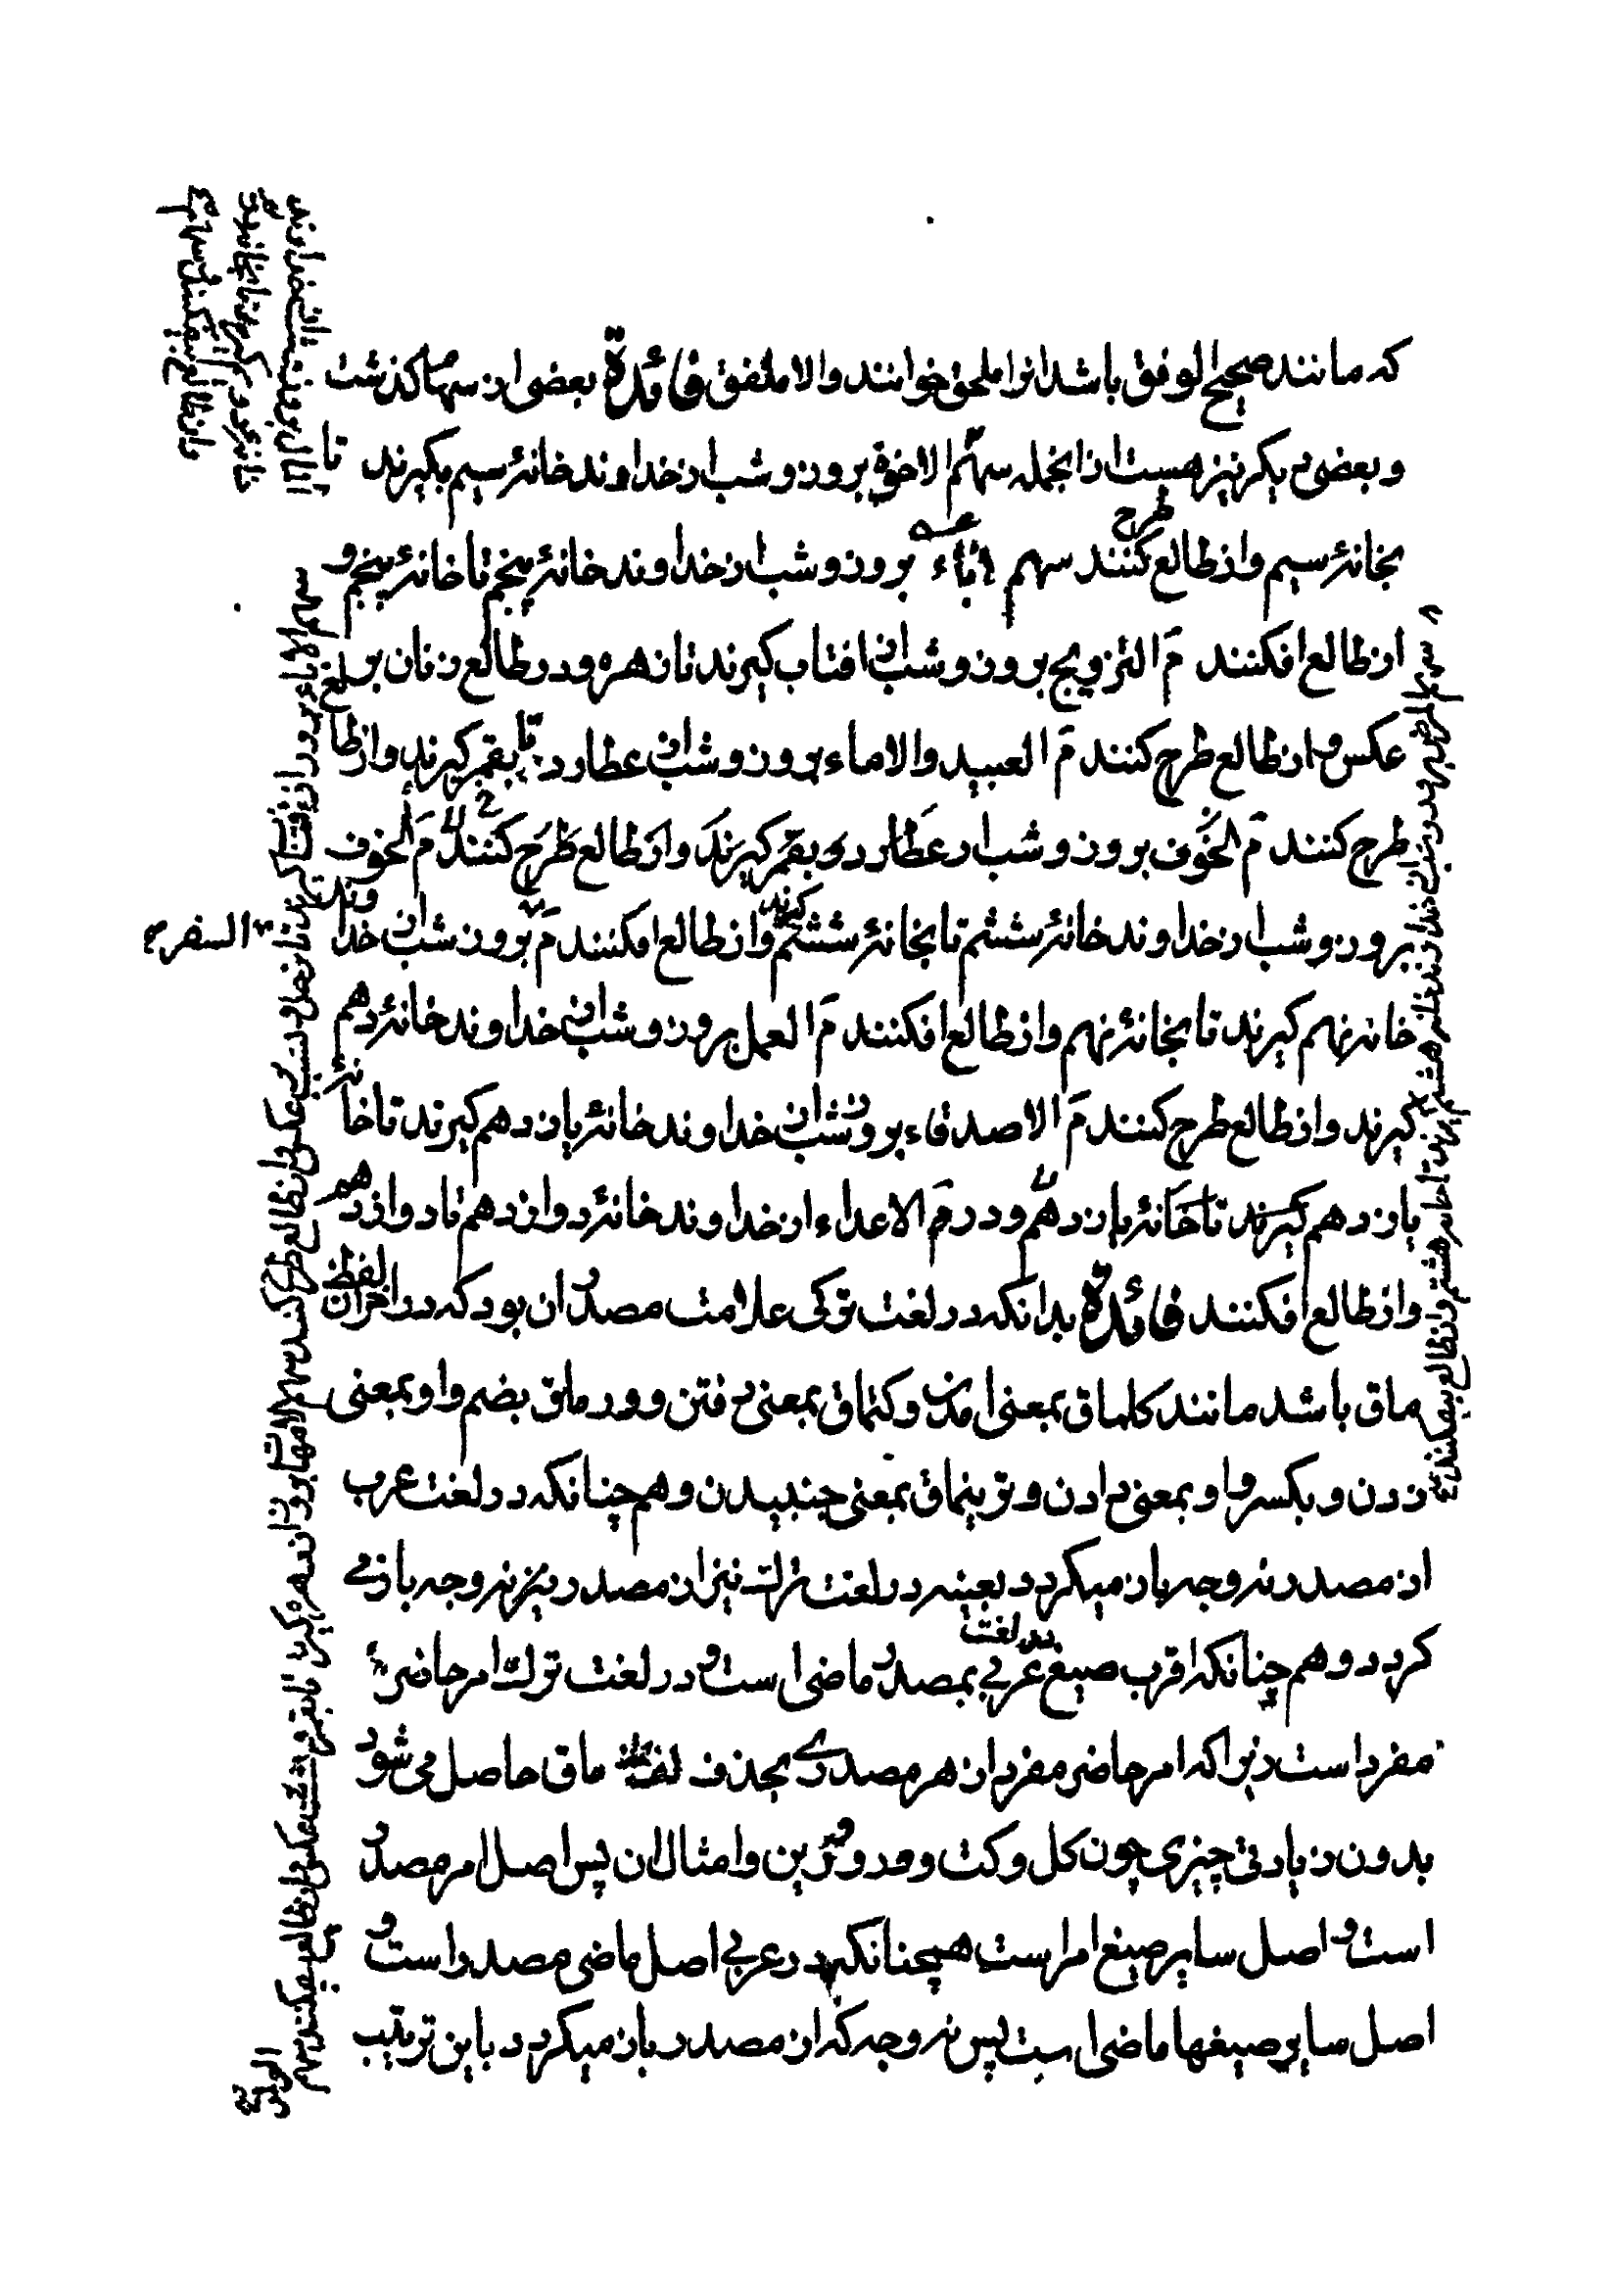 که مانند صحیح الوفق باشد انرا ملحق خوانند والا ملفق فائدة بعضی از سهمها کذشت
و بعضی دیکر نیز هست ازانجمله سهم الاخوة بروز و شب از خداوند خانهٔ سیم بکیرند تا
بخانهٔ سیم و از طالع طرح کنند سهم ابناء بروز و شب از خداوند خانهٔ پنجم تا خانهٔ پنجم و
از طالع افکنند مَ التزویج بروز و شب از افتاب کیرند تا زهره و در طالع زنان بر
عکس و از طالع طرح کنند مَ العبید والاماء بروز و شب از عطارد تا بقمر کیرند و از طالع
طرح کنند مَ الخوف بروز و شب از عطارد و بقمر کیرند و از طالع طرح کنند مَ الخوف
بروز و شب از خداوند خانهٔ ششم تا بخانهٔ ششم کیرند و از طالع افکنند مَ السفر بروز شب از خداوند
خانه نهم کیرند تا بخانهٔ نهم و از طالع افکنند مَ العمل بروز و شب از خداوند خانهٔ دهم
کیرند و از طالع طرح کنند مَ الاصدقاء بروز و شب از خداوند خانهٔ یازدهم کیرند تا خانهٔ
یازدهم کیرند تا خانهٔ یازدهم و در مَ الاعداء از خداوند خانهٔ دوازدهم تا دوازدهم
و از طالع افکنند فائدة بدانکه در لغت ترکی علامت مصدر ان بود که در اخر ان لفظ
ماق باشد مانند کلماق بمعنی امدن و کتماق بمعنی رفتن و ورماق بضم واو بمعنی
زدن و بکسر واو بمعنی دادن و ترپنماق بمعنی جنبیدن و هم چنانکه در لغت عرب
از مصدر نه وجه باز میکردد بعینه در لغت ترک نیز از مصدر نیز نه وجه باز می
کردد و هم چنانکه اقرب صیغ در لغت عربی بمصدر ماضی است و در لغت ترک امر حاضر
مفرد است زیرا که امر حاضر مفرد از هر مصدری بحذف لفظ ماق حاصل می شود
بدون زیادتی چیزی چون کل و کت و ور و ترپن و امثال ان پس اصل امر مصدر
است و اصل سایر صیغ امر است همچنانکه در عربی اصل ماضی مصدر است و
اصل سایر صیغها ماضی است پس نه وجه که از مصدر باز میکردد باین ترتیب
سهم المرض بروز و شب از خداوند خانهٔ هشتم کیرند تا خانهٔ هشتم و از طالع بیفکنند
سهم الاباء بروز از افتاب کیرند تا زحل و بشب بر عکس و از طالع طرح کنند سهم الامهات بروز از زهره کیرند تا بقمر و بشب عکس و از طالع بیفکنند سهم
الولد